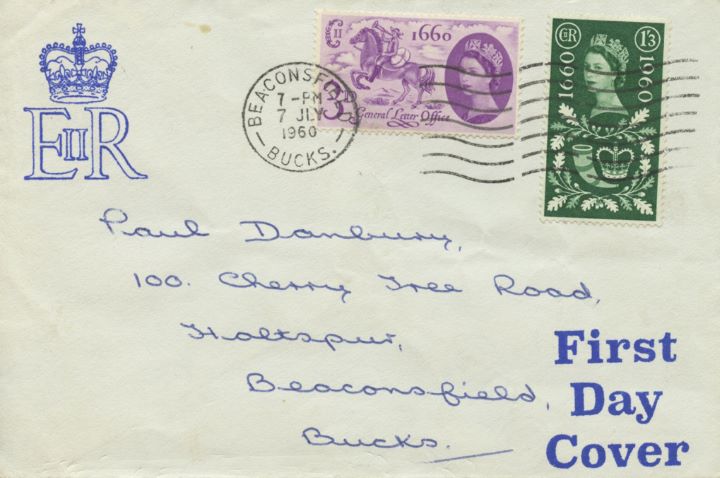 EIIR
BEACONSFIELD
7-PM
7 JLY
1960
BUCKS.
1660
General Letter Office
E II R
1'3
1660
1960
Paul Danbury,
100. Cherry Tree Road,
Holtspur,
Beaconsfield,
Bucks.
First
Day
Cover